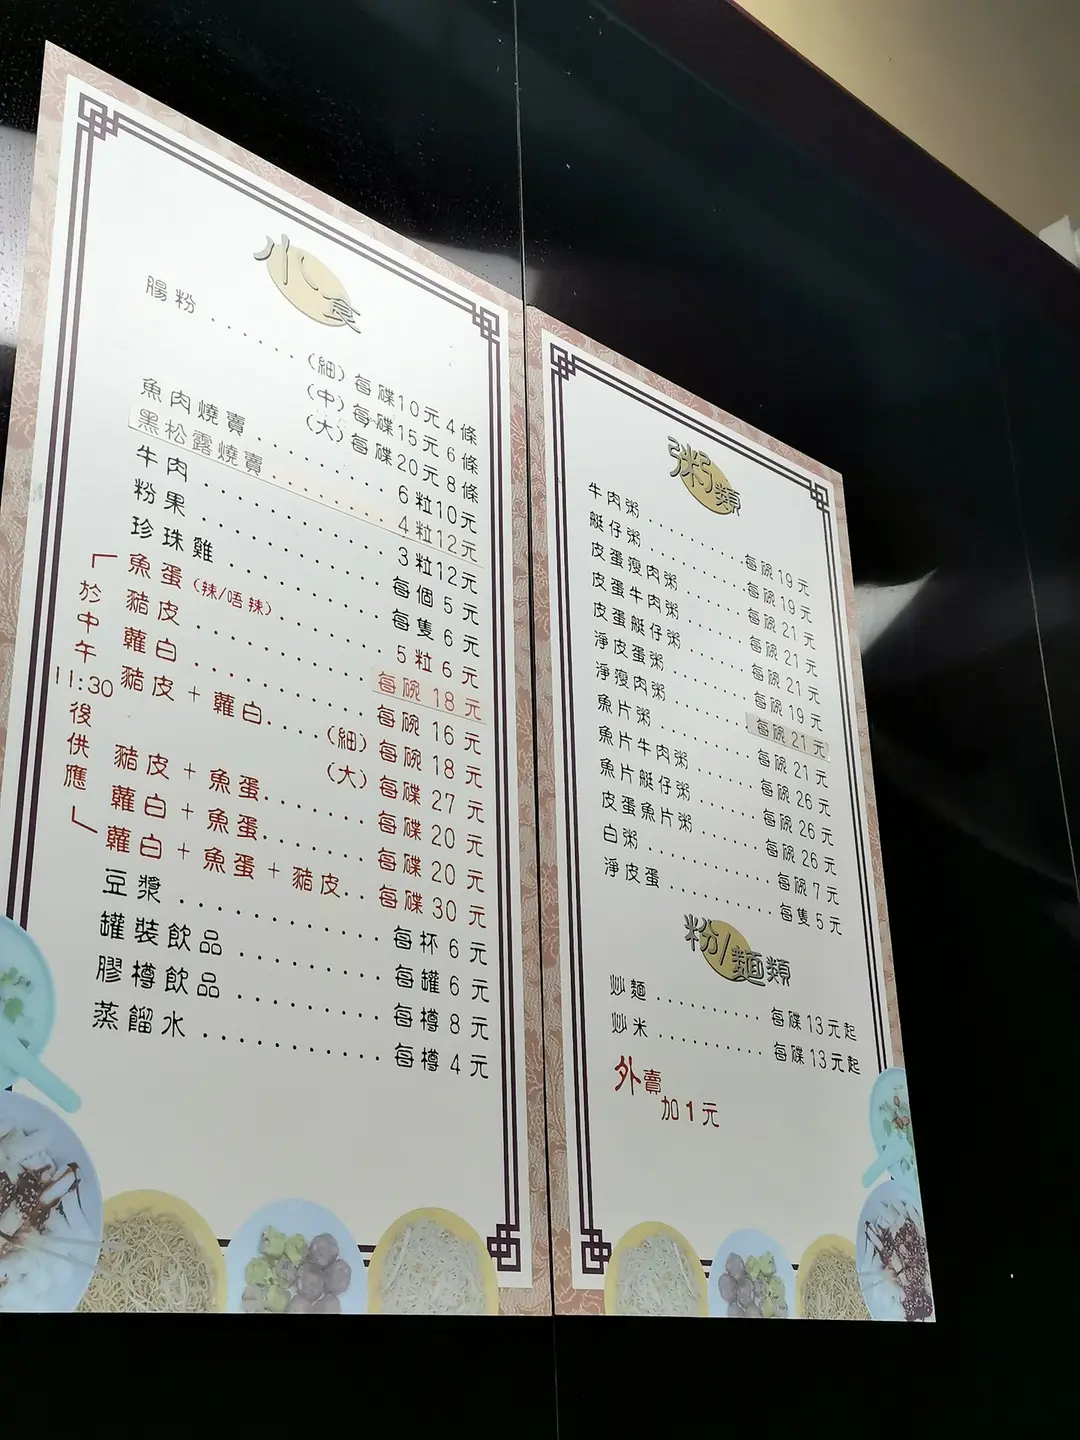 小食
腸粉..........(細)每碟10元4條
(中)每碟15元6條
(大)每碟20元8條
魚肉燒賣..........6粒10元
黑松露燒賣..........4粒12元
牛肉..........3粒12元
粉果..........每個5元
珍珠雞..........每隻6元
「於中午11:30後供應」
魚蛋(辣/唔辣)..........5粒6元
豬皮..........每碗18元
蘿白..........每碗16元
豬皮+蘿白....(細)每碗18元
(大)每碟27元
豬皮+魚蛋.......每碟20元
蘿白+魚蛋.......每碟20元
蘿白+魚蛋+豬皮..每碟30元
豆漿..........每杯6元
罐裝飲品..........每罐6元
膠樽飲品..........每樽8元
蒸餾水..........每樽4元
粥類
牛肉粥..........每碗19元
艇仔粥..........每碗19元
皮蛋瘦肉粥.......每碗21元
皮蛋牛肉粥.......每碗21元
皮蛋艇仔粥.......每碗21元
淨皮蛋粥.........每碗19元
淨瘦肉粥.........每碗21元
魚片粥..........每碗21元
魚片牛肉粥.......每碗26元
魚片艇仔粥.......每碗26元
皮蛋魚片粥.......每碗26元
白粥..........每碗7元
淨皮蛋..........每隻5元
粉/麵類
炒麵..........每碟13元起
炒米..........每碟13元起
外賣
加1元